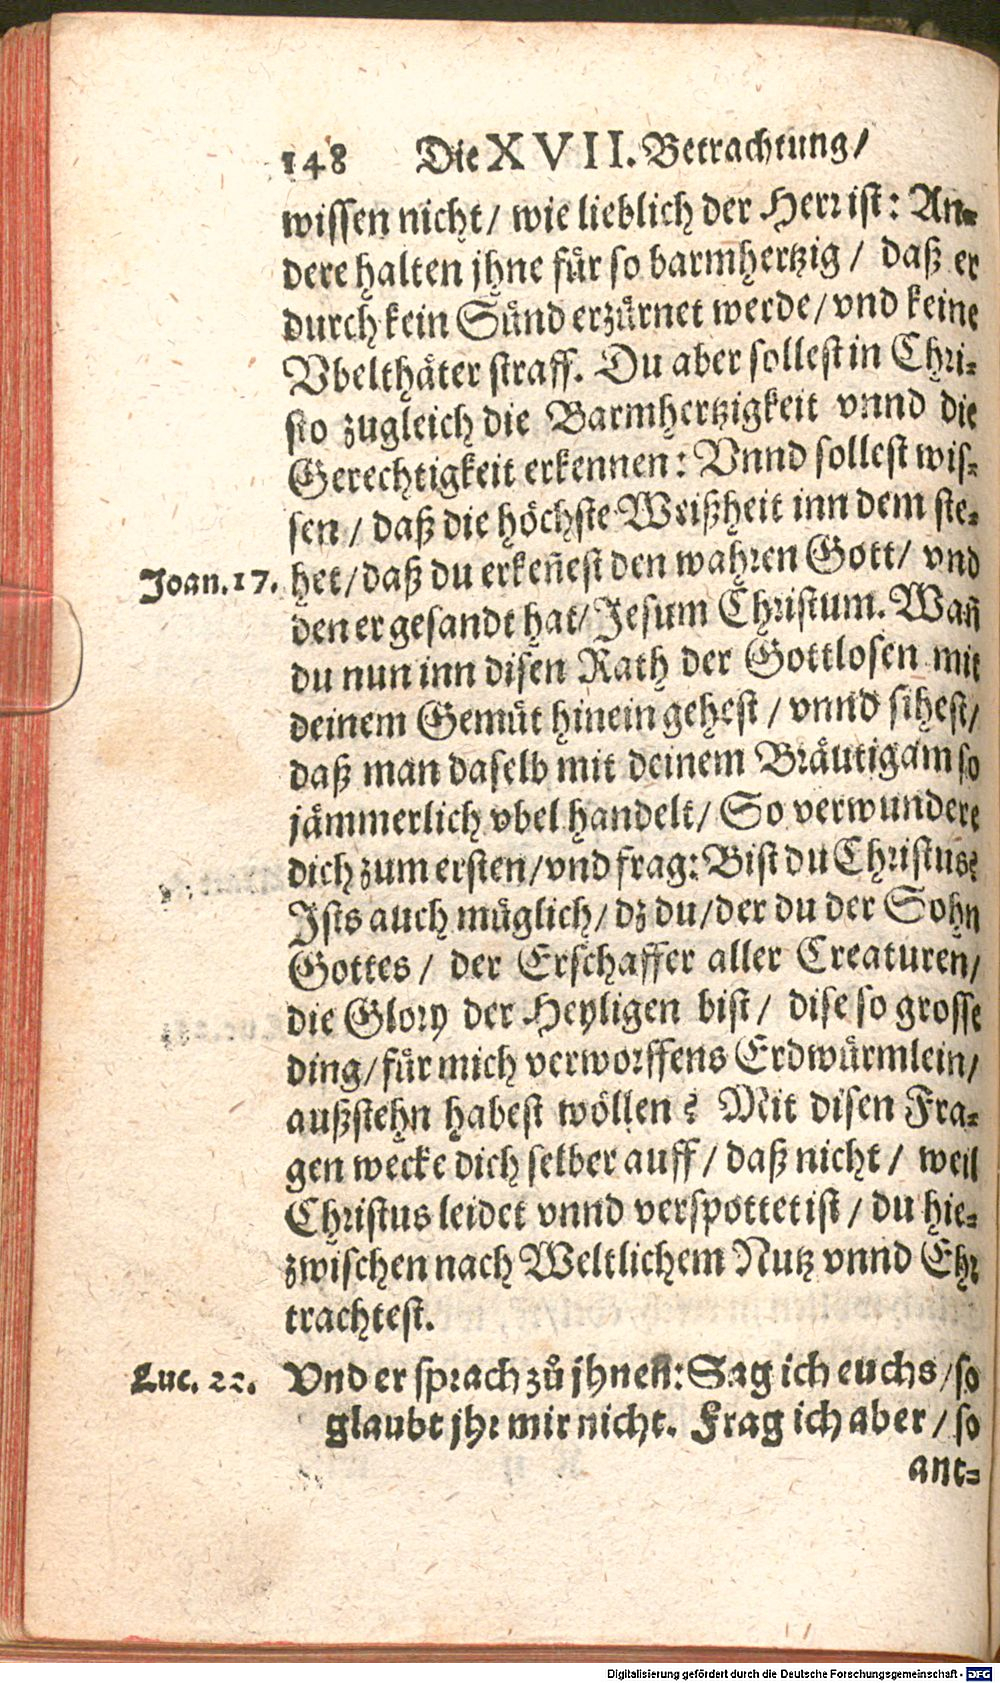 148 Die XVII. Betrachtung/
wissen nicht/ wie lieblich der Herr ist: An-
dere halten jhne für so barmhertzig/ daß er
durch kein Sünd erzürnet werde/ vnd keine
Vbelthäter straff. Du aber sollest in Chri-
sto zugleich die Barmhertzigkeit vnnd die
Gerechtigkeit erkennen: Vnnd sollest wis-
sen/ daß die höchste Weißheit inn dem ste-
Joan. 17. het/ daß du erkeñest den wahren Gott/ vnd
den er gesandt hat/ Jesum Christum. Wañ
du nun inn disen Rath der Gottlosen mit
deinem Gemüt hinein gehest/ vnnd sihest/
daß man daselb mit deinem Bräutigam so
jämmerlich vbel handelt/ So verwundere
dich zum ersten/ vnd frag: Bist du Christus?
Ists auch müglich/ dz du/ der du der Sohn
Gottes/ der Erschaffer aller Creaturen/
die Glory der Heyligen bist/ dise so grosse
ding/ für mich verworffens Erdwürmlein/
außstehn habest wöllen? Mit disen Fra-
gen wecke dich selber auff/ daß nicht/ weil
Christus leidet vnnd verspottet ist/ du hie-
zwischen nach Weltlichem Nutz vnnd Ehr
trachtest.
Luc. 22. Vnd er sprach zů jhnen: Sag ich euchs/ so
glaubt jhr mir nicht. Frag ich aber/ so
ant-
Digitalisierung gefördert durch die Deutsche Forschungsgemeinschaft - DFG